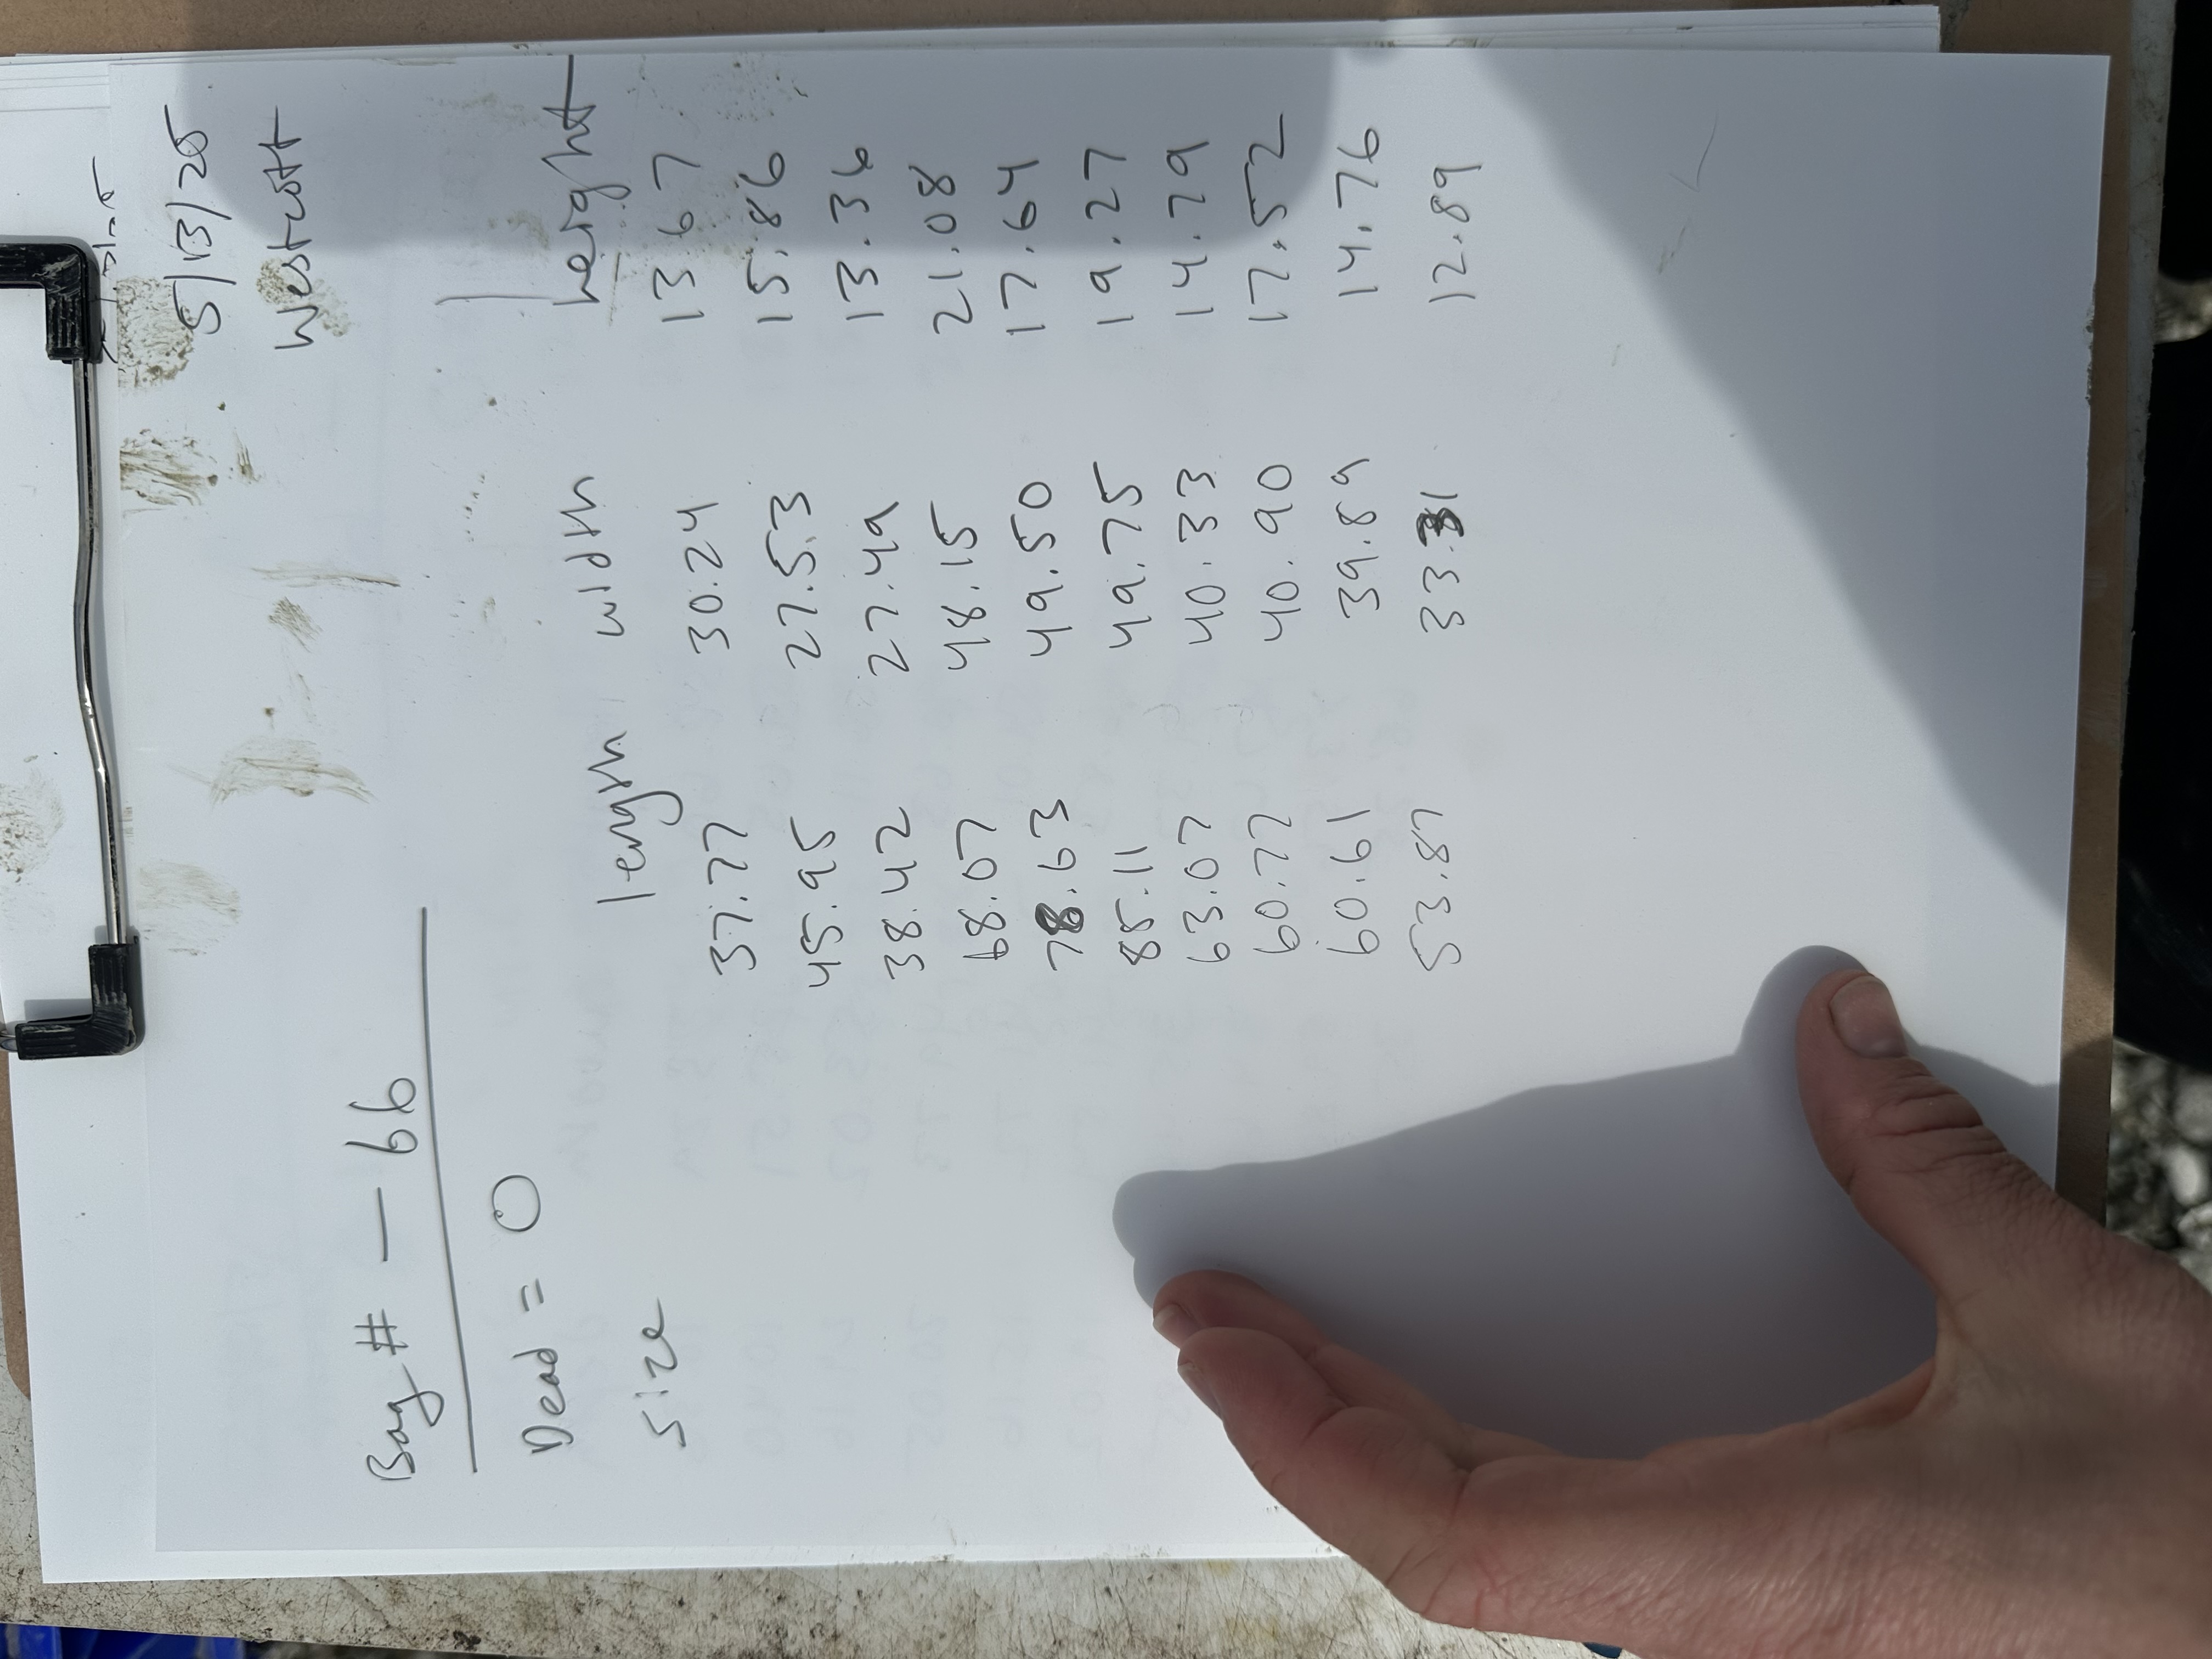 5/13/25
Westcott
Bag # — 66
Dead = 0
size length width height
37.77 30.24 13.67
45.95 27.53 15.86
38.42 27.49 13.36
68.07 48.15 21.08
78.63 49.50 17.64
85.11 49.75 19.27
63.07 40.33 14.79
60.77 40.90 17.52
60.61 39.89 14.76
53.87 33.31 12.89